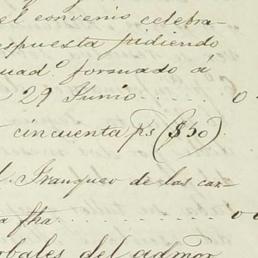 el convenio celebra-
espuesta pidiendo
uad.o formado á
29 Junio . . . . . 0
cincuenta Ps ($50)
l. Franqueo de las car-
a fha . . . . . . . . . 0
bales del admor